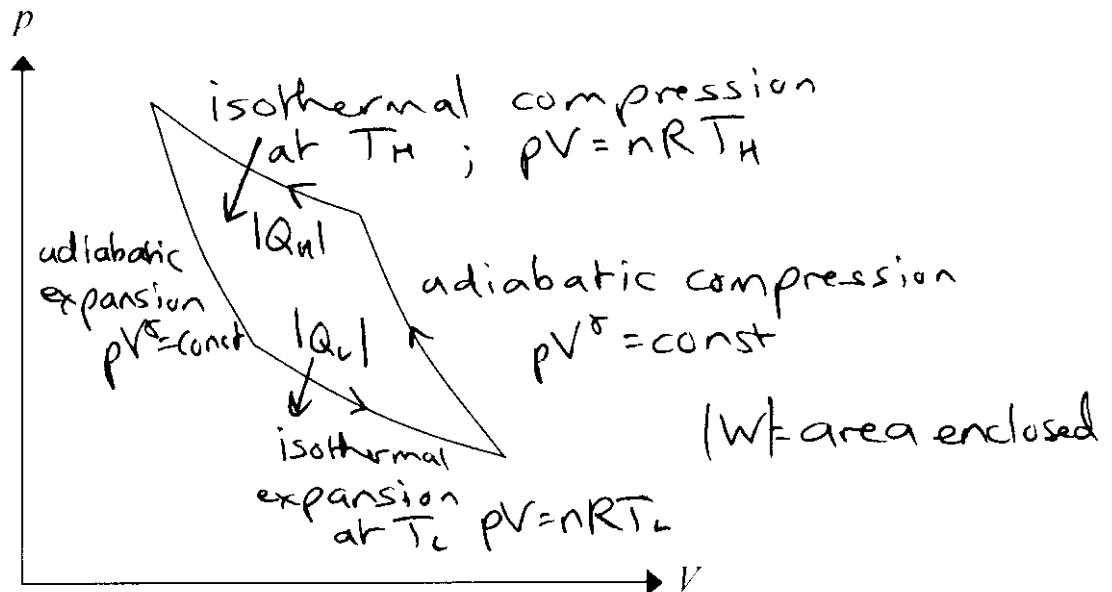 p
isothermal compression
at T_H ; pV = nRT_H
|Q_H|
adiabatic
expansion
pV^γ = const
adiabatic compression
pV^γ = const
|Q_L|
|W| = area enclosed
isothermal
expansion
at T_L pV = nRT_L
V